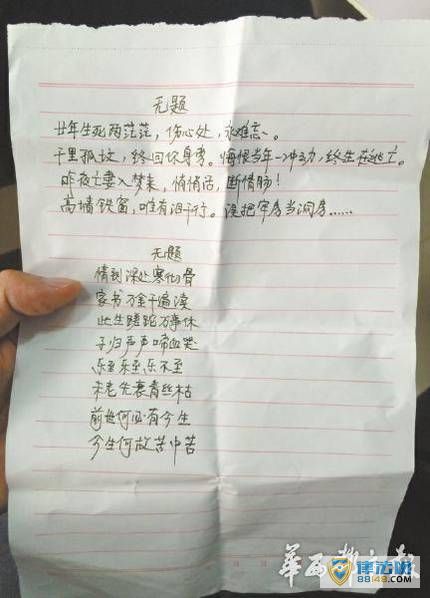 无题
廿年生死两茫茫，伤心处，永难忘。
千里孤坟，终回你身旁。悔恨当年一冲动，终生在逃亡。
昨夜亡妻入梦来，悄悄话，断情肠！
高墙铁窗，唯有泪千行。没把牢房当洞房……
无题
情到深处寒彻骨
家书万金千遍读
此生蹉跎万事休
子归声声啼血哭
乐至乐至乐不至
未老先衰青丝枯
前世何必有今生
今生何故苦中苦
华西都市报
律法网
88148.com